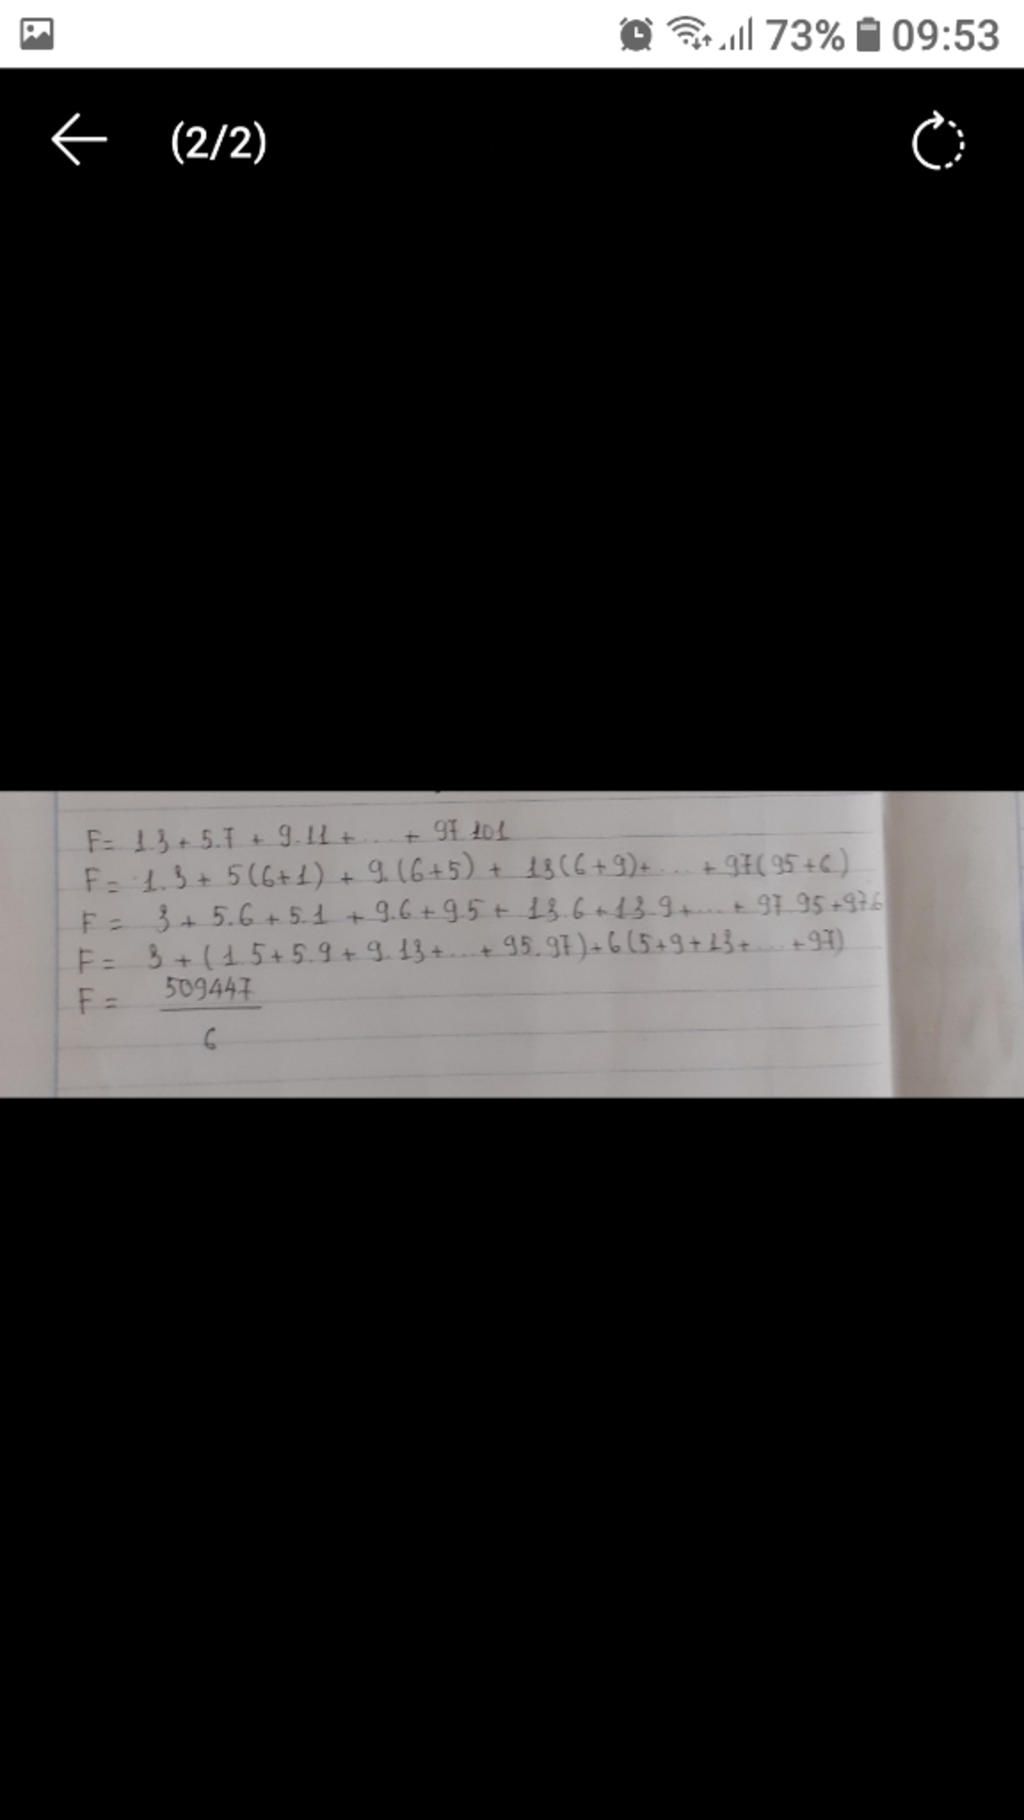 73% 09:53
(2/2)
F= 1.3 + 5.7 + 9.11 + ... + 97.101
F= 1.3 + 5(6+1) + 9.(6+5) + 13(6+9)+ ... + 97(95+6)
F= 3 + 5.6 + 5.1 + 9.6 + 9.5 + 13.6 + 13.9 + ... + 97.95+97.6
F= 3 + (1.5+5.9+9.13+...+95.97)+6(5+9+13+...+97)
F= 509447
6